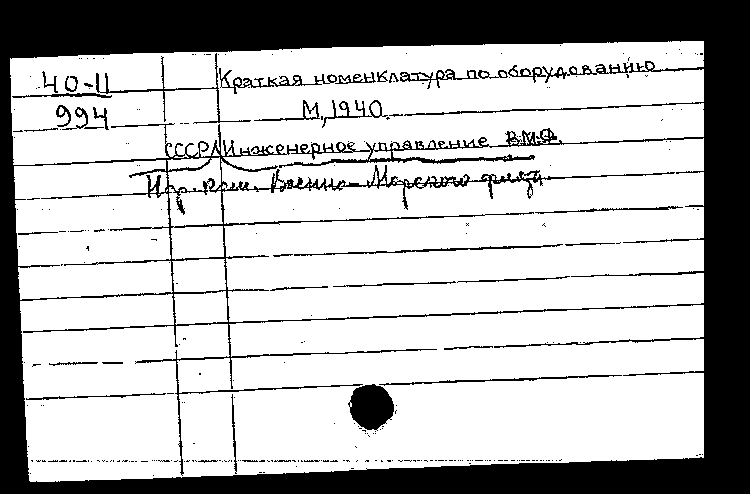 40-11 Краткая номенклатура по оборудованию
994 М, 1940.
СССР Инженерное управление В.М.Ф.
Нар. Ком. Военно-Морского флота.